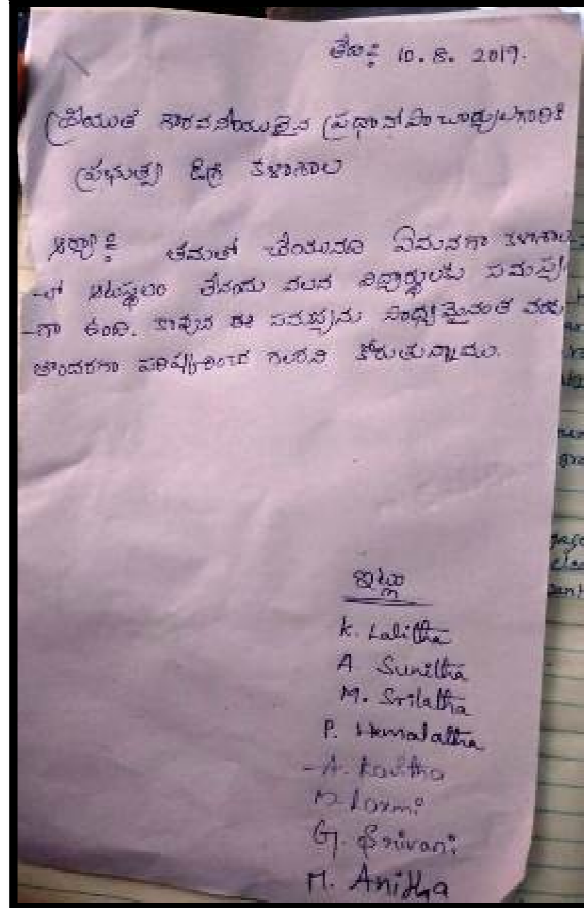 తేది: 10. 8. 2019.
ప్రియుత గౌరవనీయులైన ప్రధానోపాధ్యాయులుగారికి
ప్రభుత్వ డిగ్రీ కళాశాల
ఆర్యా: తమతో చేయునది ఏమనగా కళాశాల-
-లో ఆటస్థలం లేనందు వలన విద్యార్థులకు సమస్య
-గా ఉంది. కావున ఈ సమస్యను సాధ్యమైనంత వరకు
తొందరగా పరిష్కరించ గలరని కోరుతున్నాము.
ఇట్లు
K. Lalitha
A Sunitha
M. Srilatha
P. Hemalatha
A. Kavitha
M. Laxmi
G. Srivani
M. Anitha